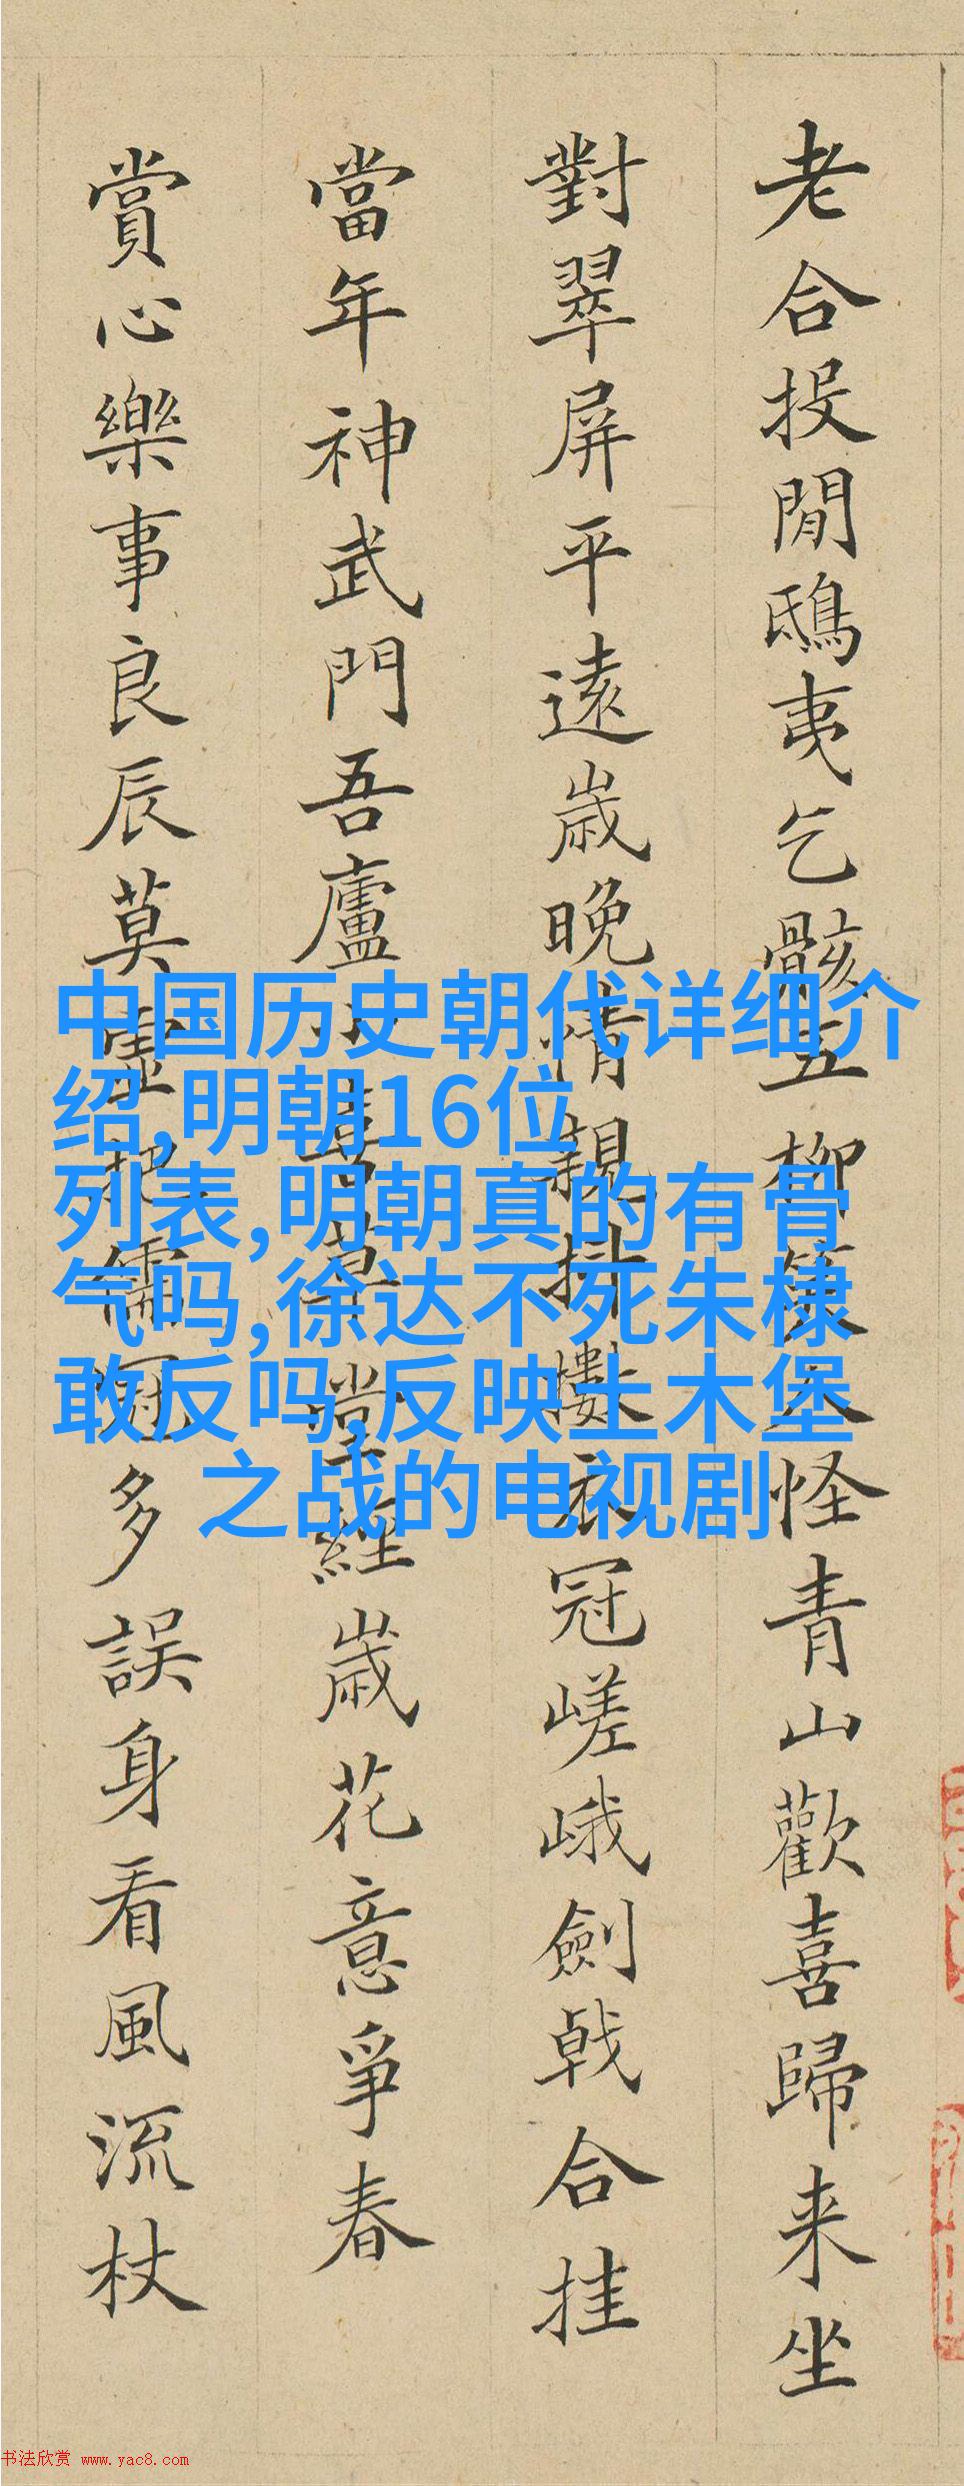 老合投閒鴟夷乞骸五柳笑人怪青山歡喜歸来坐
對翠屏平遠歳晚情親掛樓衣冠嵯峨劍戟合挂
當年神武門吾廬小喜草堂經歳花意爭春
賞心樂事良辰莫虛把儒冠多誤身看風流杖
中国历史朝代详细介
绍,明朝16位
列表,明朝真的有骨
气吗,徐达不死朱棣
敢反吗,反映土木堡
之战的电视剧
书法欣赏 www.yac8.com